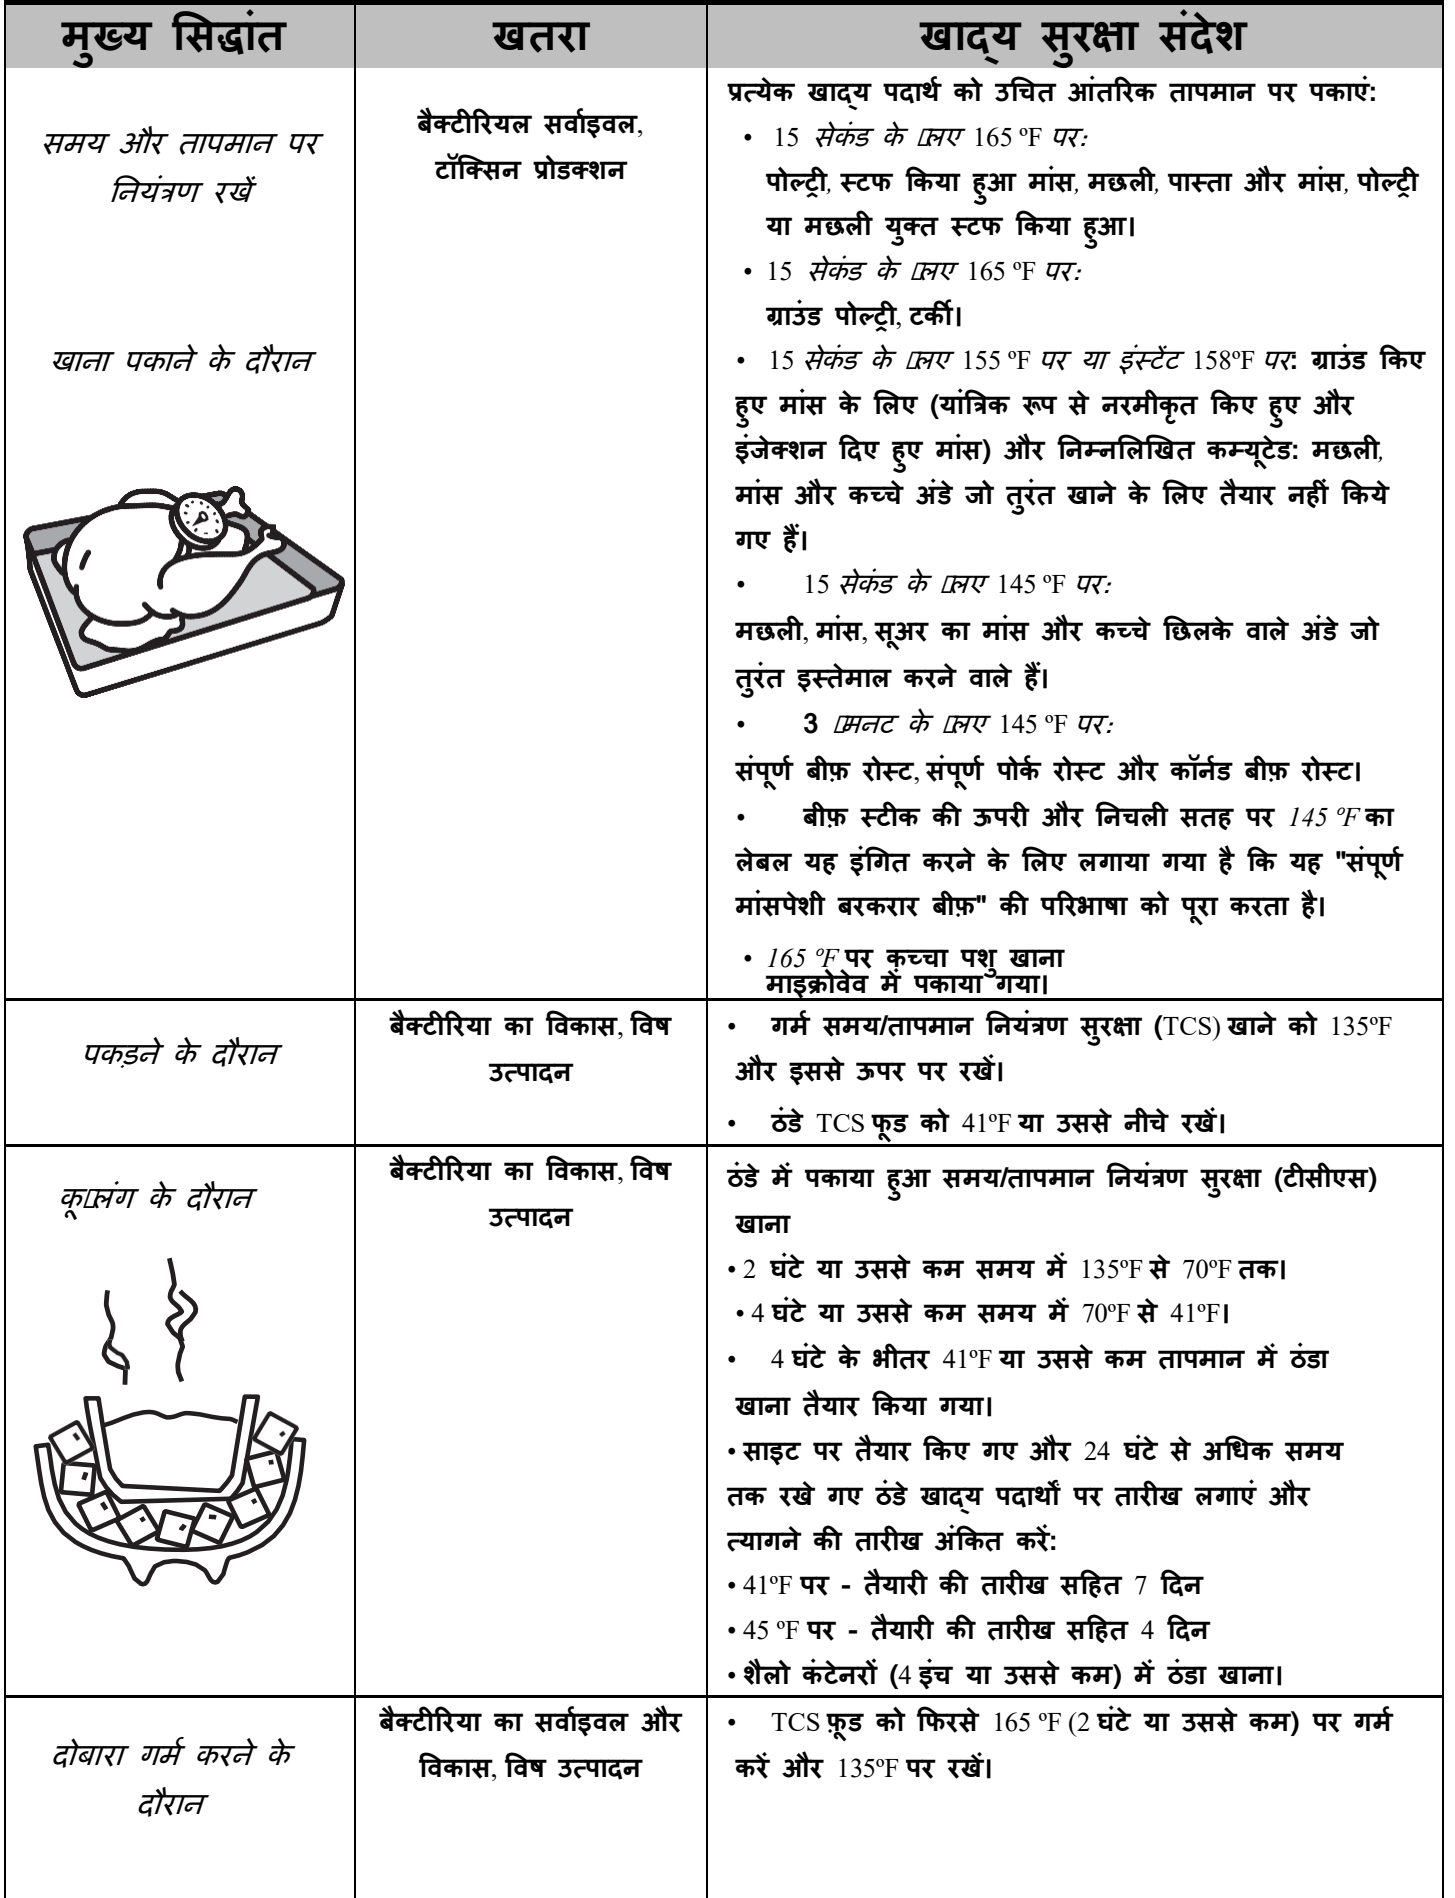 मुख्य सिद्धांत
खतरा
खाद्य सुरक्षा संदेश
समय और तापमान पर
नियंत्रण रखें
खाना पकाने के दौरान
बैक्टीरियल सर्वाइवल,
टॉक्सिन प्रोडक्शन
प्रत्येक खाद्य पदार्थ को उचित आंतरिक तापमान पर पकाएं:
• 15 सेकंड के लिए 165 ºF पर:
पोल्ट्री, स्टफ किया हुआ मांस, मछली, पास्ता और मांस, पोल्ट्री
या मछली युक्त स्टफ किया हुआ।
• 15 सेकंड के लिए 165 ºF पर:
ग्राउंड पोल्ट्री, टर्की।
• 15 सेकंड के लिए 155 ºF पर या इंस्टेंट 158ºF पर: ग्राउंड किए
हुए मांस के लिए (यांत्रिक रूप से नरमीकृत किए हुए और
इंजेक्शन दिए हुए मांस) और निम्नलिखित कम्यूटेड: मछली,
मांस और कच्चे अंडे जो तुरंत खाने के लिए तैयार नहीं किये
गए हैं।
• 15 सेकंड के लिए 145 ºF पर:
मछली, मांस, सूअर का मांस और कच्चे छिलके वाले अंडे जो
तुरंत इस्तेमाल करने वाले हैं।
• 3 मिनट के लिए 145 ºF पर:
संपूर्ण बीफ़ रोस्ट, संपूर्ण पोर्क रोस्ट और कॉर्नड बीफ़ रोस्ट।
• बीफ़ स्टीक की ऊपरी और निचली सतह पर 145 ºF का
लेबल यह इंगित करने के लिए लगाया गया है कि यह "संपूर्ण
मांसपेशी बरकरार बीफ़" की परिभाषा को पूरा करता है।
• 165 ºF पर कच्चा पशु खाना
माइक्रोवेव में पकाया गया।
पकड़ने के दौरान
बैक्टीरिया का विकास, विष
उत्पादन
• गर्म समय/तापमान नियंत्रण सुरक्षा (TCS) खाने को 135ºF
और इससे ऊपर पर रखें।
• ठंडे TCS फूड को 41ºF या उससे नीचे रखें।
कूलिंग के दौरान
बैक्टीरिया का विकास, विष
उत्पादन
ठंडे में पकाया हुआ समय/तापमान नियंत्रण सुरक्षा (टीसीएस)
खाना
• 2 घंटे या उससे कम समय में 135ºF से 70ºF तक।
• 4 घंटे या उससे कम समय में 70ºF से 41ºF।
• 4 घंटे के भीतर 41ºF या उससे कम तापमान में ठंडा
खाना तैयार किया गया।
• साइट पर तैयार किए गए और 24 घंटे से अधिक समय
तक रखे गए ठंडे खाद्य पदार्थों पर तारीख लगाएं और
त्यागने की तारीख अंकित करें:
• 41ºF पर - तैयारी की तारीख सहित 7 दिन
• 45 ºF पर - तैयारी की तारीख सहित 4 दिन
• शैलो कंटेनरों (4 इंच या उससे कम) में ठंडा खाना।
दोबारा गर्म करने के
दौरान
बैक्टीरिया का सर्वाइवल और
विकास, विष उत्पादन
• TCS फ़ूड को फिरसे 165 ºF (2 घंटे या उससे कम) पर गर्म
करें और 135ºF पर रखें।